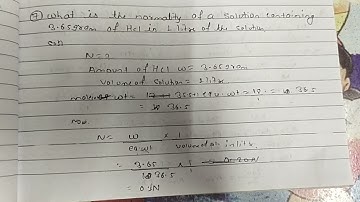 ⑦ What is the normality of a solution containing
3.65 gram of Hcl in 1 litre of the solution
Solⁿ
N = ?
Amount of HCl w = 3.65 gram
Volume of solution = 1 litre
wt = 35.5 + eq. wt = = 36.5
= 36.5
N = w/eq wt × 1/volume of in litre
= 3.65/36.5 × 1
= 0.1N